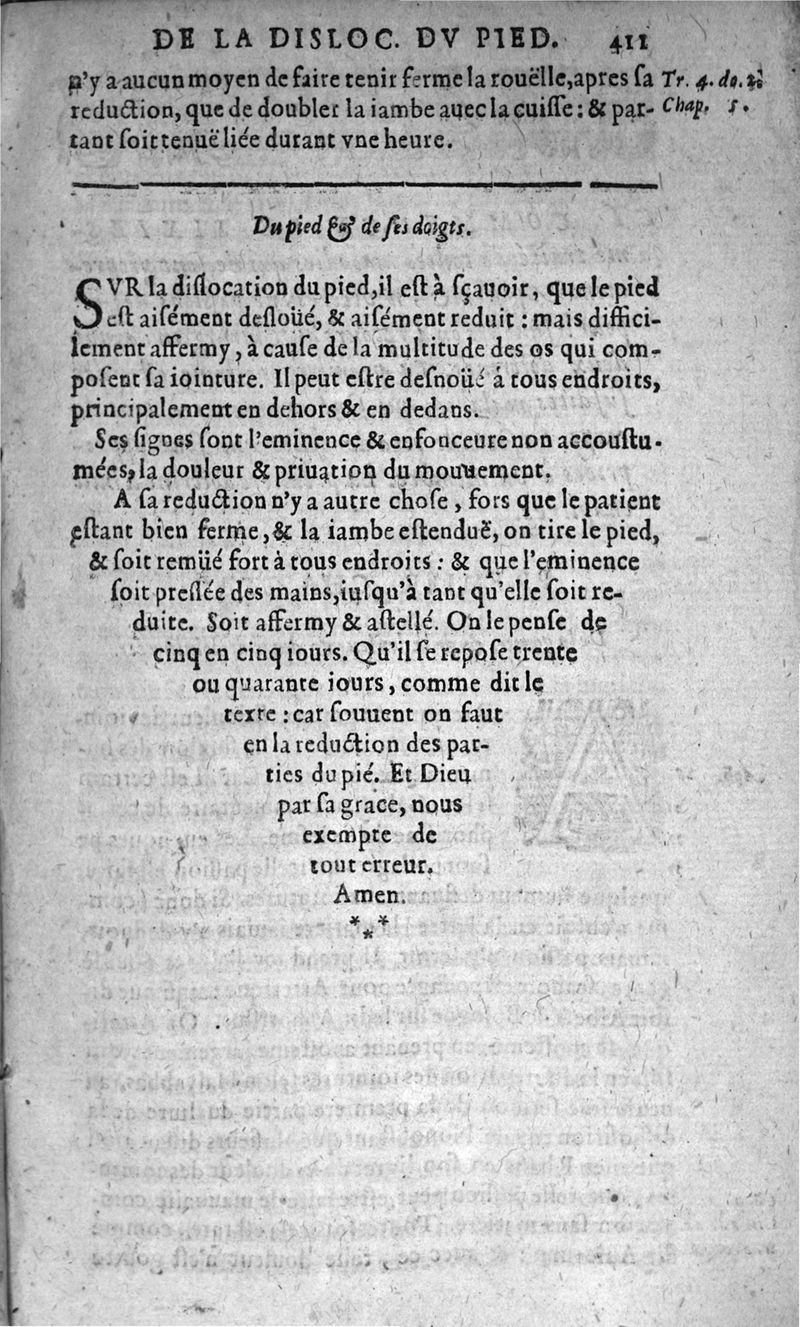 DE LA DISLOC. DV PIED. 411
n'y a aucun moyen de faire tenir ferme la rouëlle, apres sa Tr. 4. do. 2.
reduction, que de doubler la iambe auec la cuisse : & par- Chap. 5.
tant soit tenuë liée durant vne heure.
Du pied & de ses doigts.
SVR la dislocation du pied, il est à sçauoir, que le pied
est aisément desloüé, & aisément reduit : mais diffici-
lement affermy, à cause de la multitude des os qui com-
posent sa iointure. Il peut estre desnoüé á tous endroits,
principalement en dehors & en dedans.
Ses signes sont l'eminence & enfonceure non accoustu-
mées, la douleur & priuation du mouuement.
A sa reduction n'y a autre chose, fors que le patient
estant bien ferme, & la iambe estenduë, on tire le pied,
& soit remüé fort à tous endroits : & que l'eminence
soit pressée des mains, iusqu'à tant qu'elle soit re-
duite. Soit affermy & astellé. On le pense de
cinq en cinq iours. Qu'il se repose trente
ou quarante iours, comme dit le
texte : car souuent on faut
en la reduction des par-
ties du pié. Et Dieu
par sa grace, nous
exempte de
tout erreur.
Amen.
* *
*